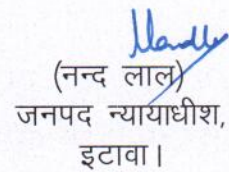 (नन्द लाल)
जनपद न्यायाधीश,
इटावा।